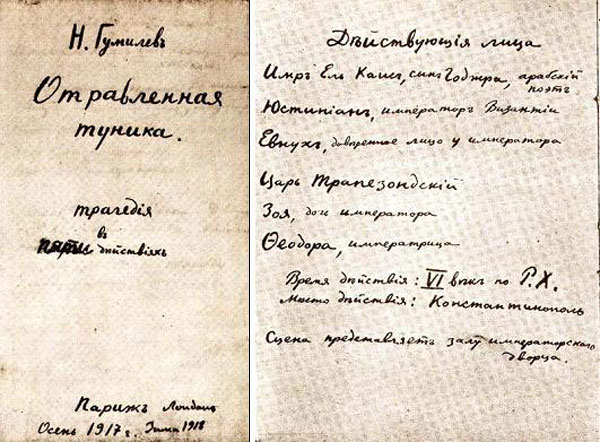 Н. Гумилевъ
Отравленная
туника.
трагедія
въ
дѣйствіяхъ
Парижъ Лондонъ
Осень 1917 г. Зима 1918
Дѣйствующія лица
Имръ Ель Каисъ, сынъ Годжра, арабскій
поэтъ
Юстиніанъ, императоръ Византіи
Евнухъ, довѣренное лицо у императора
Царь Трапезондскій
Зоя, дочь императора
Ѳеодора, императрица
Время дѣйствія: VI вѣкъ по Р.Х.
Мѣсто дѣйствія: Константинополь
Сцена представляетъ залу императорскаго
дворца.